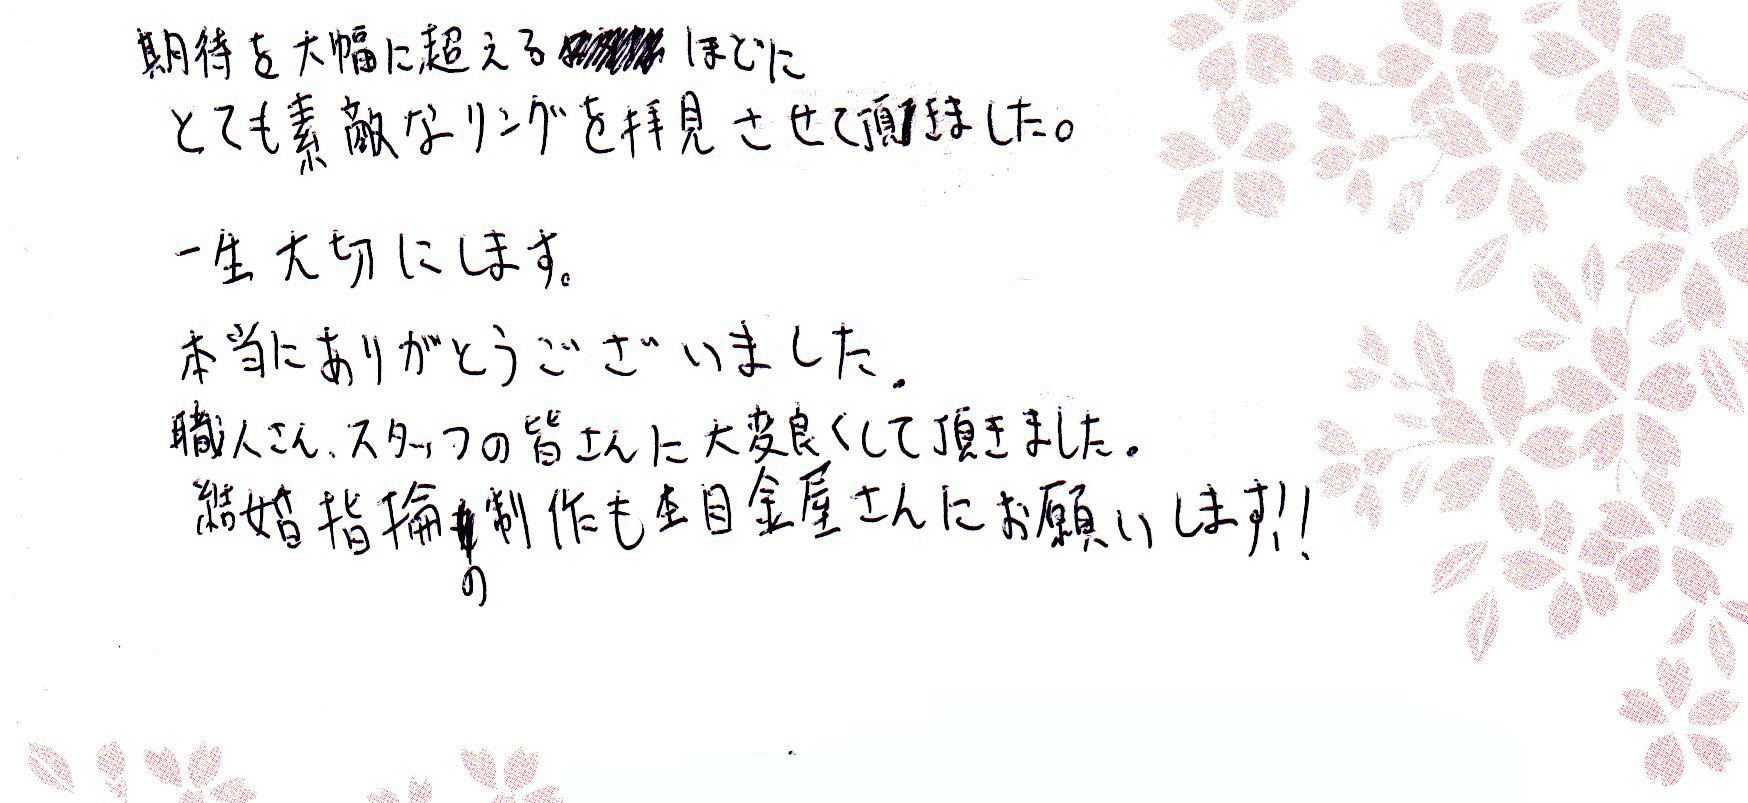 期待を大幅に超えるほどに
とても素敵なリングを拝見させて頂きました。
一生大切にします。
本当にありがとうございました。
職人さん、スタッフの皆さんに大変良くして頂きました。
結婚指輪の制作も杢目金屋さんにお願いします!!